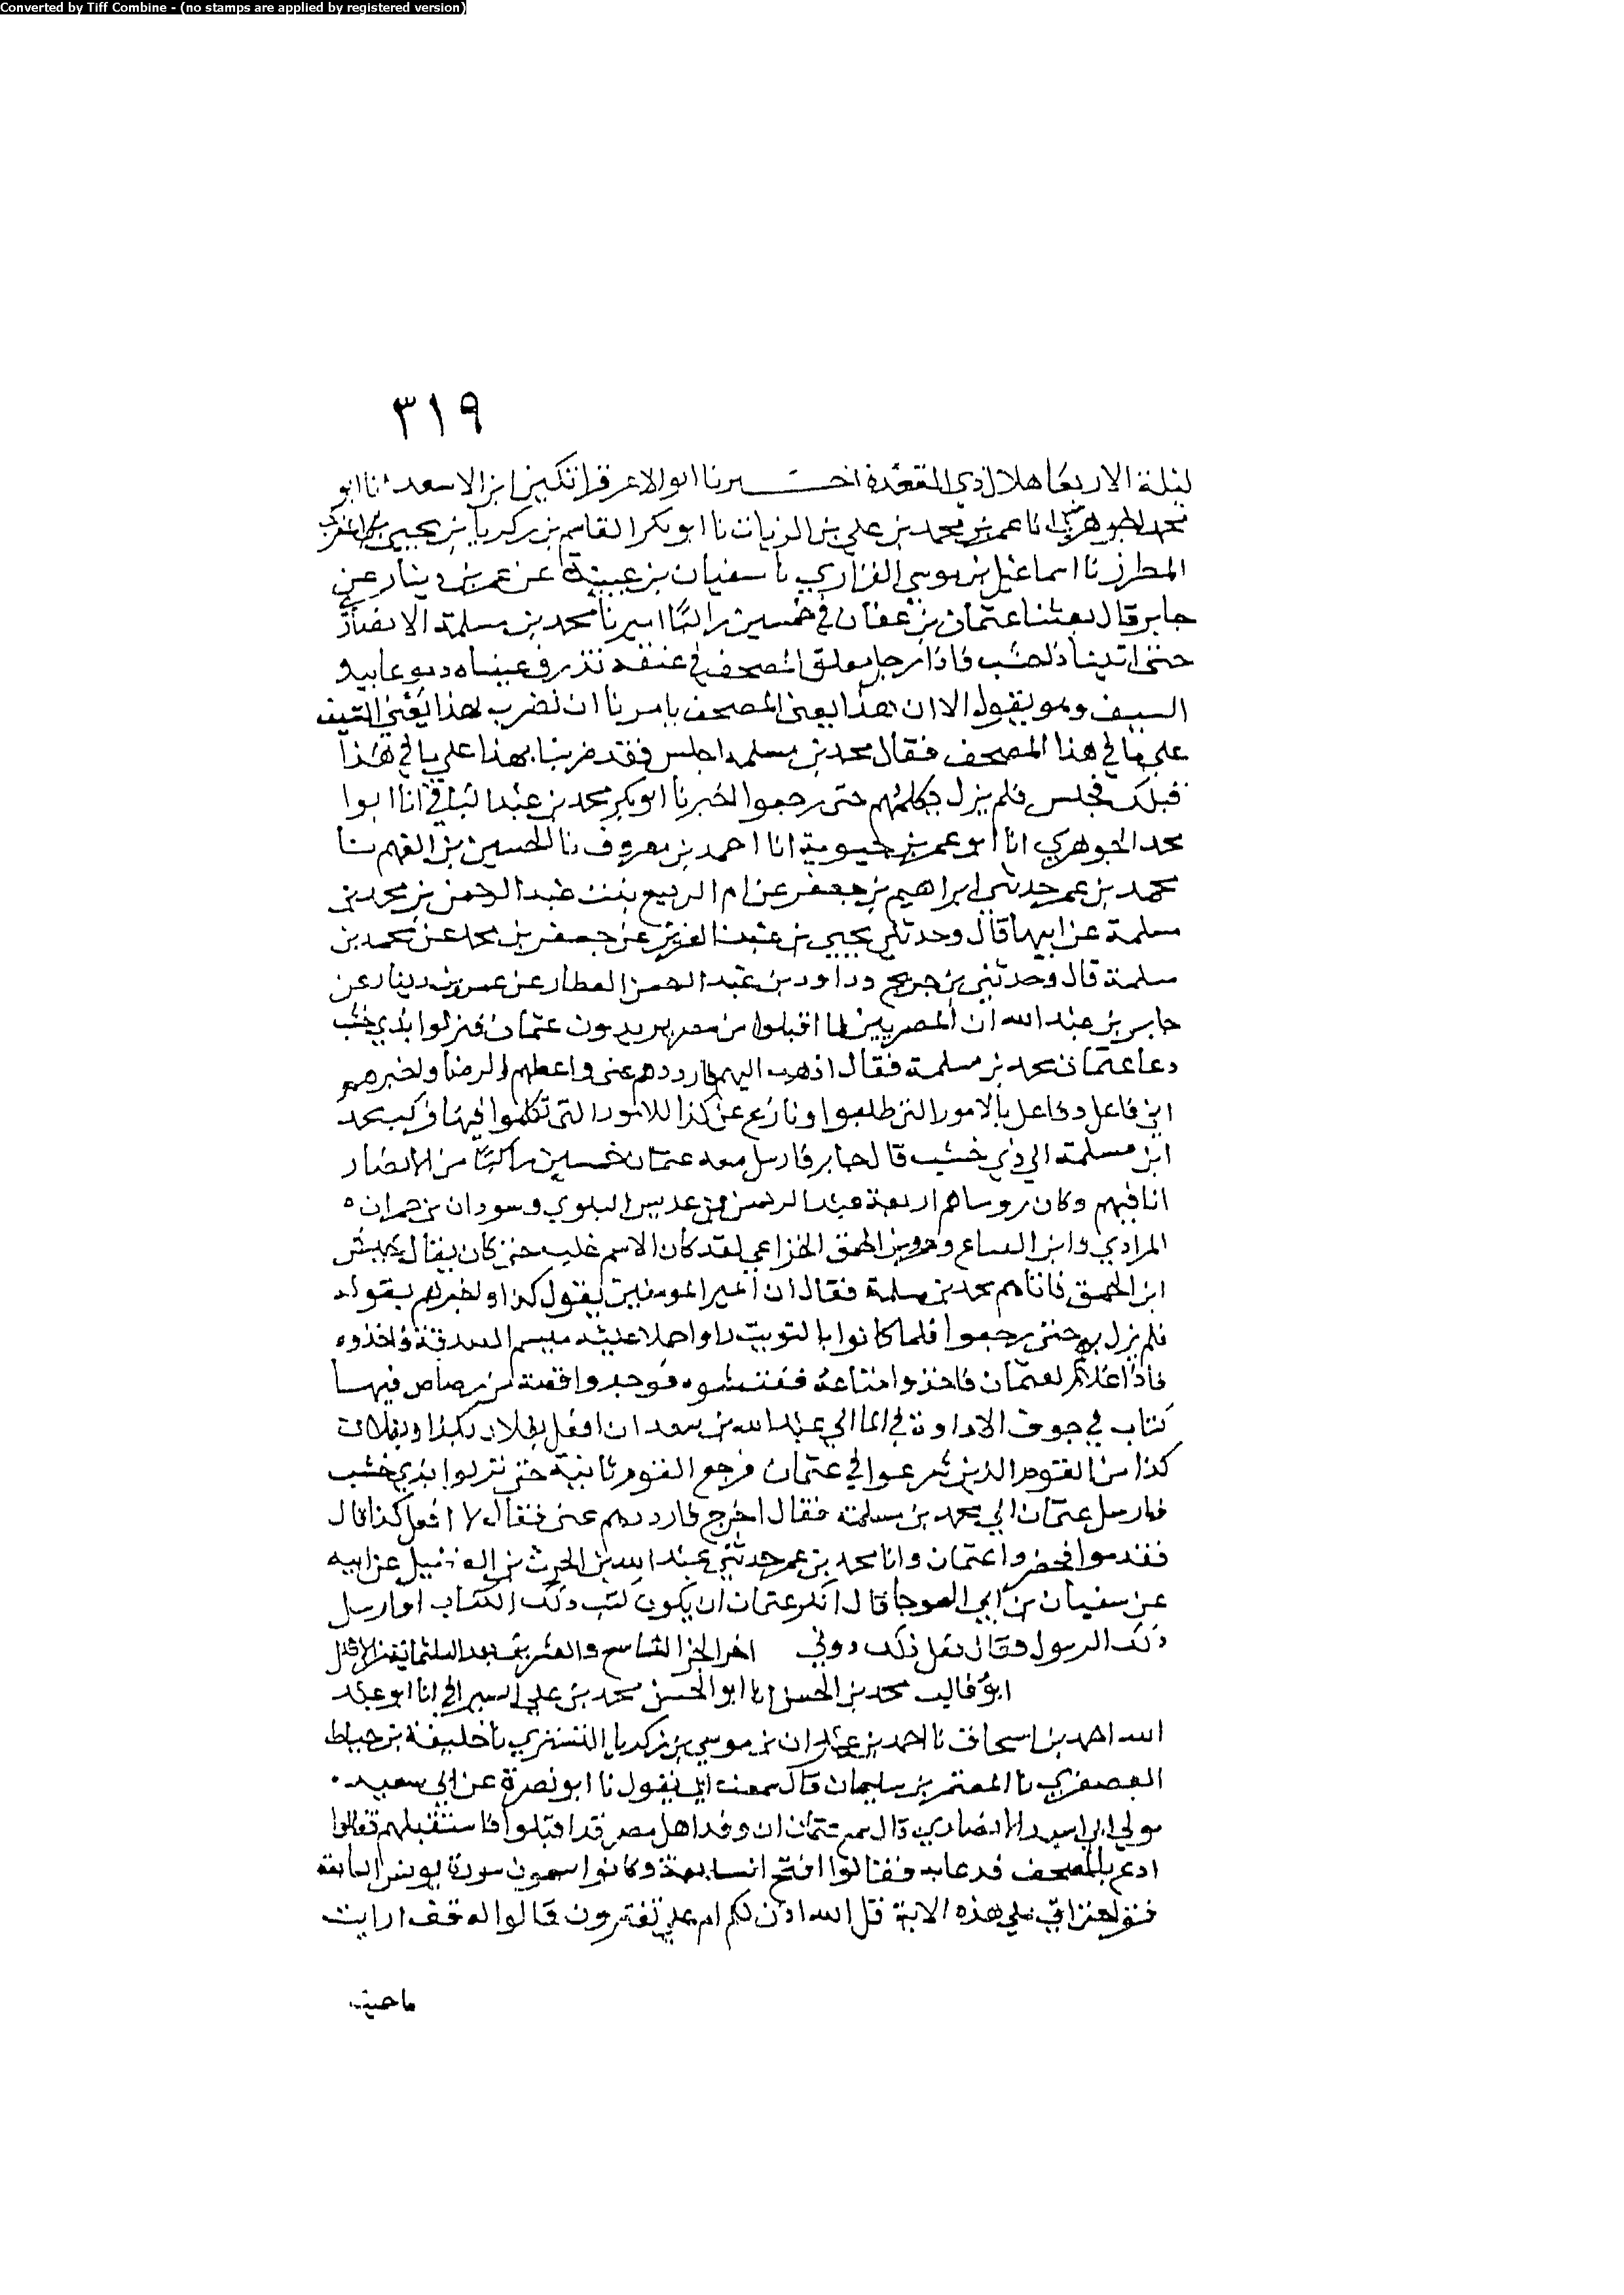 Converted by Tiff Combine - (no stamps are applied by registered version)
٣١٩
ليلة الاربعا هلال ذي القعدة اخبرنا ابو الاعز قراتكين ابن الاسعد انا ابو
محمد الجوهري انا عمر بن محمد بن علي بن الزيات نا ابو بكر القاسم بن زكريا بن يحيى
المطرز نا اسماعيل بن موسي الفزاري نا سفيان بن عيينة عن عمرو بن دينار عن
جابر قال بعثنا عثمان بن عفان في خمسين راكبا اميرنا محمد بن مسلمة الانصاري
حتى اتينا ذا خشب فاذا رجل معلق المصحف في عنقه تذرف عيناه دموعا بيده
السيف وهو يقول الا ان هذا يعني المصحف يامرنا ان نضرب بهذا يعني السيف
على ما في هذا المصحف فقال محمد بن مسلمه اجلس فقد ضربنا بهذا على ما في هذا
قبلك فجلس فلم يزل يكلمهم حتى رجعوا اخبرنا ابو بكر محمد بن عبد الباقي انا ابوا
محمد الجوهري انا ابو عمر بن حيوية انا احمد بن معروف نا الحسين بن الفهم نا
محمد بن عمر حدثني ابراهيم بن جعفر عن ام الربيع بنت عبد الرحمن بن محمد بن
مسلمة عن ابيها قال وحدثني يحيى بن عبد العزيز عن جعفر بن محمد عن محمد بن
مسلمة قال وحدثني بن جريج وداود بن عبد الرحمن العطار عن عمرو بن دينار عن
جابر بن عبد الله ان المصريين لما اقبلوا من مصر يريدون عثمان فنزلوا بذي خشب
دعا عثمان محمد بن مسلمة فقال اذهب اليهم فارددهم عني واعطهم الرضا واخبرهم
اني فاعل وفاعل بالامور التي طلبوا ونازع عن كذا للامور التي تكلموا فيها فركب محمد
ابن مسلمة الى ذي خشب قال جابر فارسل معه عثمان خمسين راكبا من الانصار
انا فيهم وكان روساهم اربعة عبد الرحمن بن عديس البلوي وسودان بن حمران
المرادي وابن البياع وعمرو بن الحمق الخزاعي لقد كان الاسم غلب حتى كان يقال جيش
ابن الحمق فاتاهم محمد بن مسلمة فقال ان امير المومنين يقول كذا واخبرهم بقوله
فلم يزل بهم حتى رجعوا فلما كانوا بالبويب راوا جملا عليه ميسم الصدقة فاخذوه
فاذا غلام لعثمان فاخذوا متاعه ففتشوه فوجدوا قصبة من رصاص فيها
كتاب في جوف الاداوة في الما الي عبد الله بن سعد ان افعل بفلان كذا وبفلان
كذا من القوم الذين شرعوا في عثمان فرجع القوم ثانية حتى نزلوا بذي خشب
فارسل عثمان الي محمد بن مسلمة فقال اخرج فارددهم عني فقال لا افعل كذا قال
فقدموا فحضروا عثمان وانا محمد بن عمر حدثني عبد الله بن الحرث بن الفضيل عن ابيه
عن سفيان بن ابي العوجا قال انكر عثمان ان يكون كتب ذلك الكتاب او ارسل
ذلك الرسول وقال فعل ذلك دوني اخر الجز التاسع والعشرين بعد الثلثمائة من الاصل
ابو غالب محمد بن الحسن انا ابو الحسن محمد بن علي السيرافي انا ابو عبد
الله احمد بن اسحاق نا احمد بن عمران بن موسي بن زكريا التستري نا خليفة بن خياط
العصفري نا المعتمر بن سليمان قال سمعت ابي يقول نا ابو نصرة عن ابي سعيد
مولي ابي اسيد الانصاري قال سمع عثمان ان وفد اهل مصر قد اقبلوا فاستقبلهم فقالوا
ادع بالمصحف فدعا به فقالوا افتح السابعة وكانوا يسمون سورة يونس السابعة
فقراها حتى اتي على هذه الاية قل الله اذن لكم ام على تفترون قالوا له قف ارايت
ما حميت